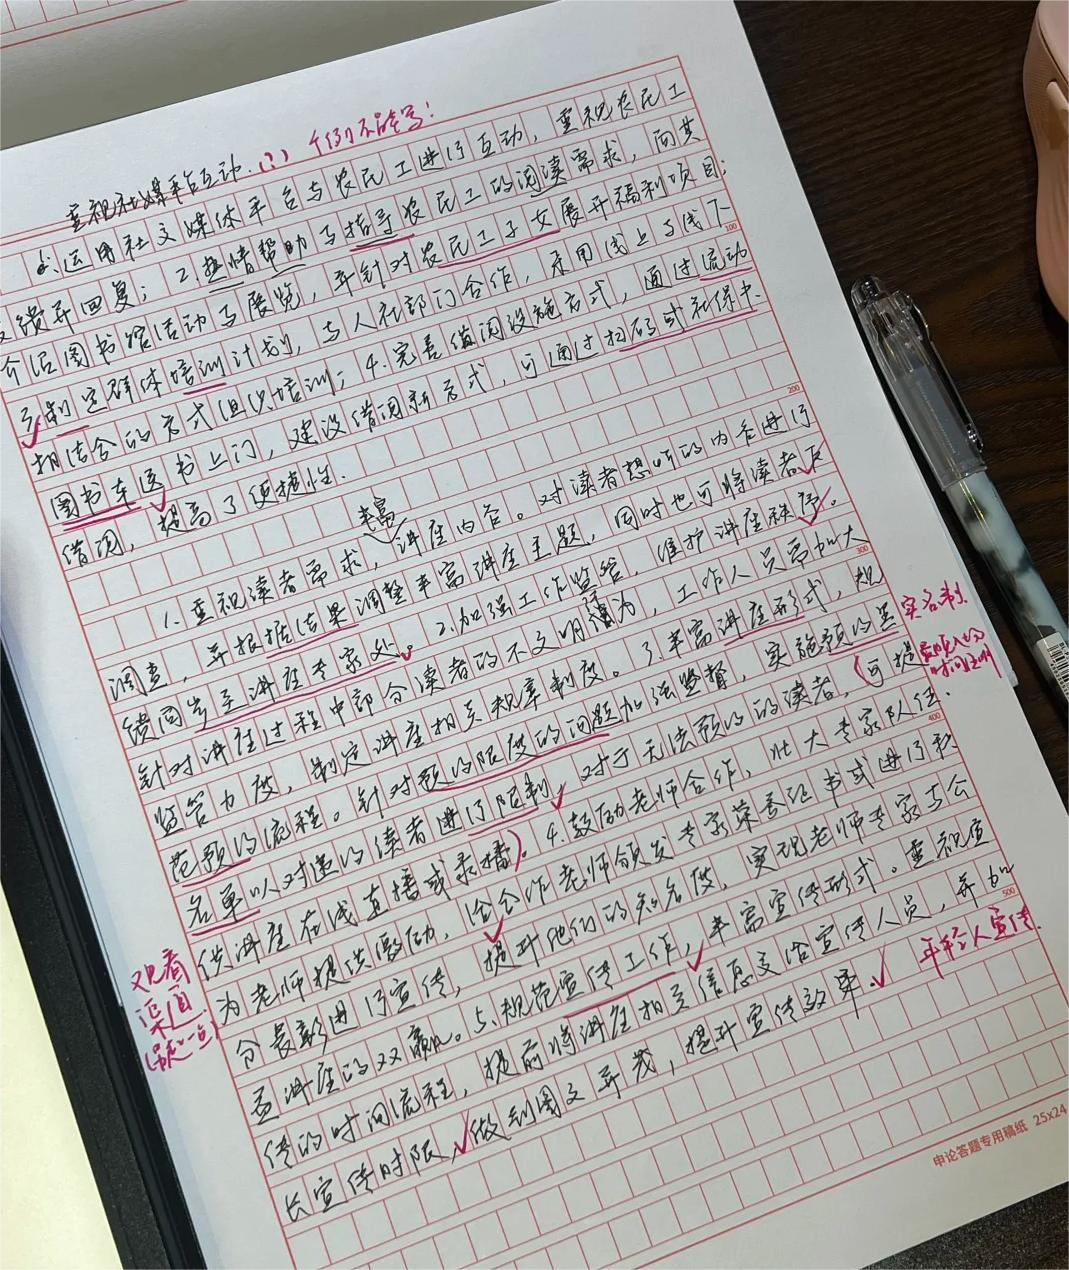 重视社媒平台互动.(1) 个例不能写!
运用社交媒体平台与农民工进行互动,重视农民工
反馈并回复;2.热情帮助与指导农民工的阅读需求,向其
介绍图书馆活动与展览,并针对农民工子女展开福利项目;
3.制定群体培训计划,与人社部门合作,采用线上与线下
100
相结合的方式组织培训;4.完善借阅设施方式,通过流动
图书车送书上门,建设借阅新方式,可通过扫码或社保卡
借阅,提高了便捷性.
200
丰富
1.重视读者需求,讲座内容。对读者想听的内容进行
调查,并根据结果调整丰富讲座主题,同时也可将读者反
馈同步至讲座专家处。2.加强工作监管,维护讲座秩序。
针对讲座过程中部分读者的不文明行为,工作人员需加大
300
监管力度,制定讲座相关规章制度。3.丰富讲座形式,规
实名制.
范预约流程。针对预约限度的问题加强监督,实施预约黑
名单以对违约读者进行限制,对于无法预约的读者,(可提
供讲座在线直播或录播)。4.鼓励老师合作,壮大专家队伍.
400
为老师提供激励,给合作老师颁发专家荣誉证书或进行积
分长彰进行宣传,提升他们的知名度,实现老师专家与公
益讲座的双赢。5.规范宣传工作,丰富宣传形式。重视宣
传的时间流程,提前将讲座相关信息交给宣传人员,并加
500
长宣传时限,做到图文并茂,提升宣传效果.
年轻人宣传.
观看
渠道
申论答题专用稿纸 25x24